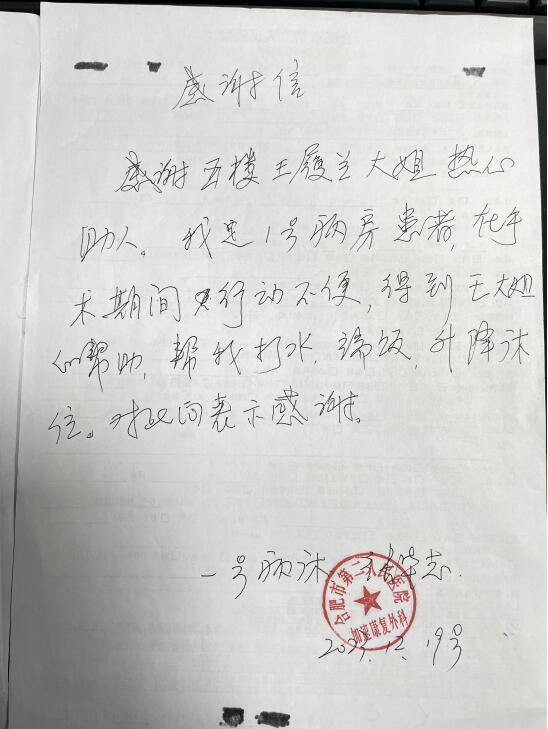 感谢信
感谢五楼王履兰大姐热心
助人。我是1号病房患者,在手
术期间行动不便,得到王大姐
的帮助,帮我打水,端饭,升降床
位。对此同表示感谢。
一号病床
合肥市第二人民医院
加速康复外科
2023.12.19号